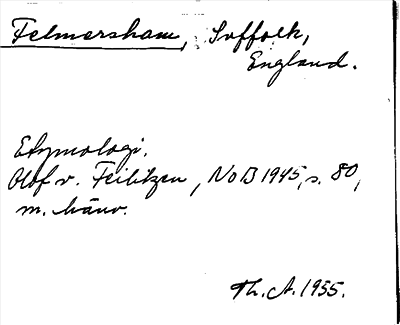 Felmersham, Suffolk,
England.
Etymologi.
Olof v. Feilitzen, NoB 1945, s. 80,
m. hänv.
Th. A. 1955.